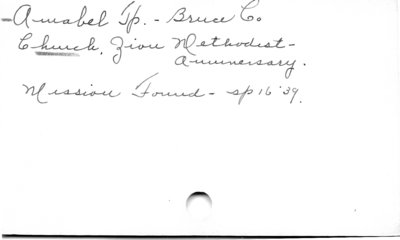 -Amabel Tp. - Bruce Co
Church, Zion Methodist -
Anniversary.
Mission Found - sp 16 '39.